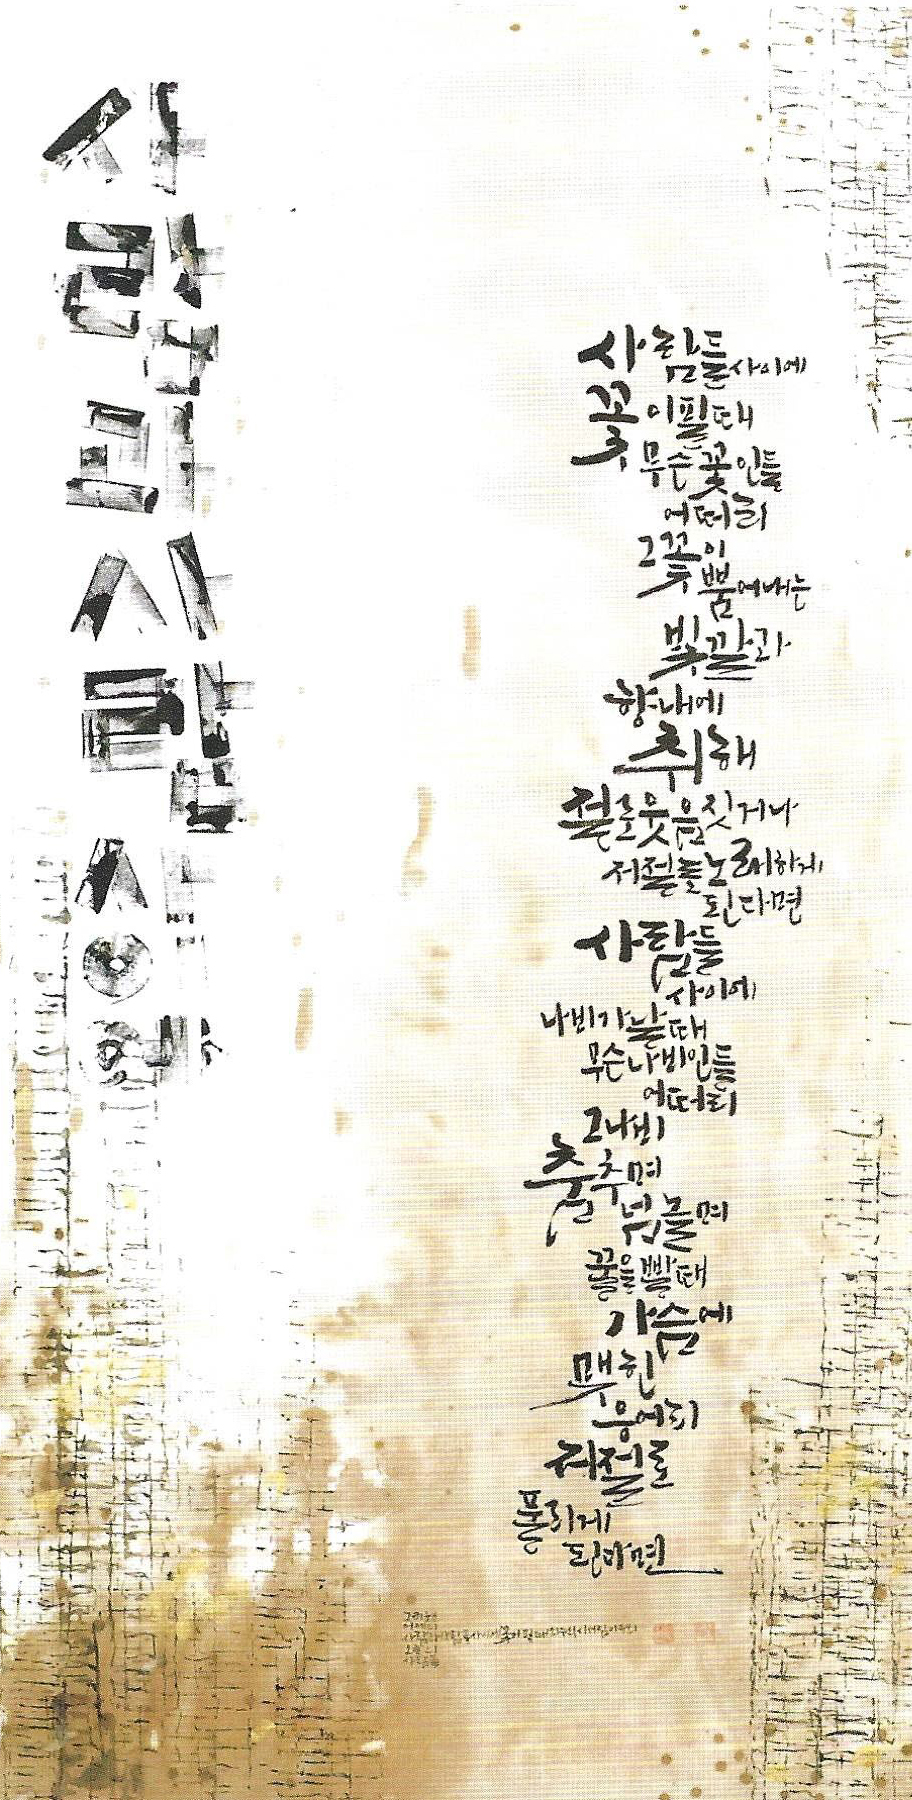 사람과사람사이에
사람들 사이에
꽃이 필때
무슨 꽃인들
어떠리
그 꽃이
뿜어내는
빛깔과
향내에
취해
절로 웃음짓거나
저절로 노래하게
된다면
사람들
사이에
나비가 날때
무슨 나비인들
어떠리
그 나비
춤추며
넘놀며
꿀을 빨 때
가슴에
맺힌
응어리
저절로
풀리게
된다면
사람들 사이에 꽃이 필 때 최두석 시